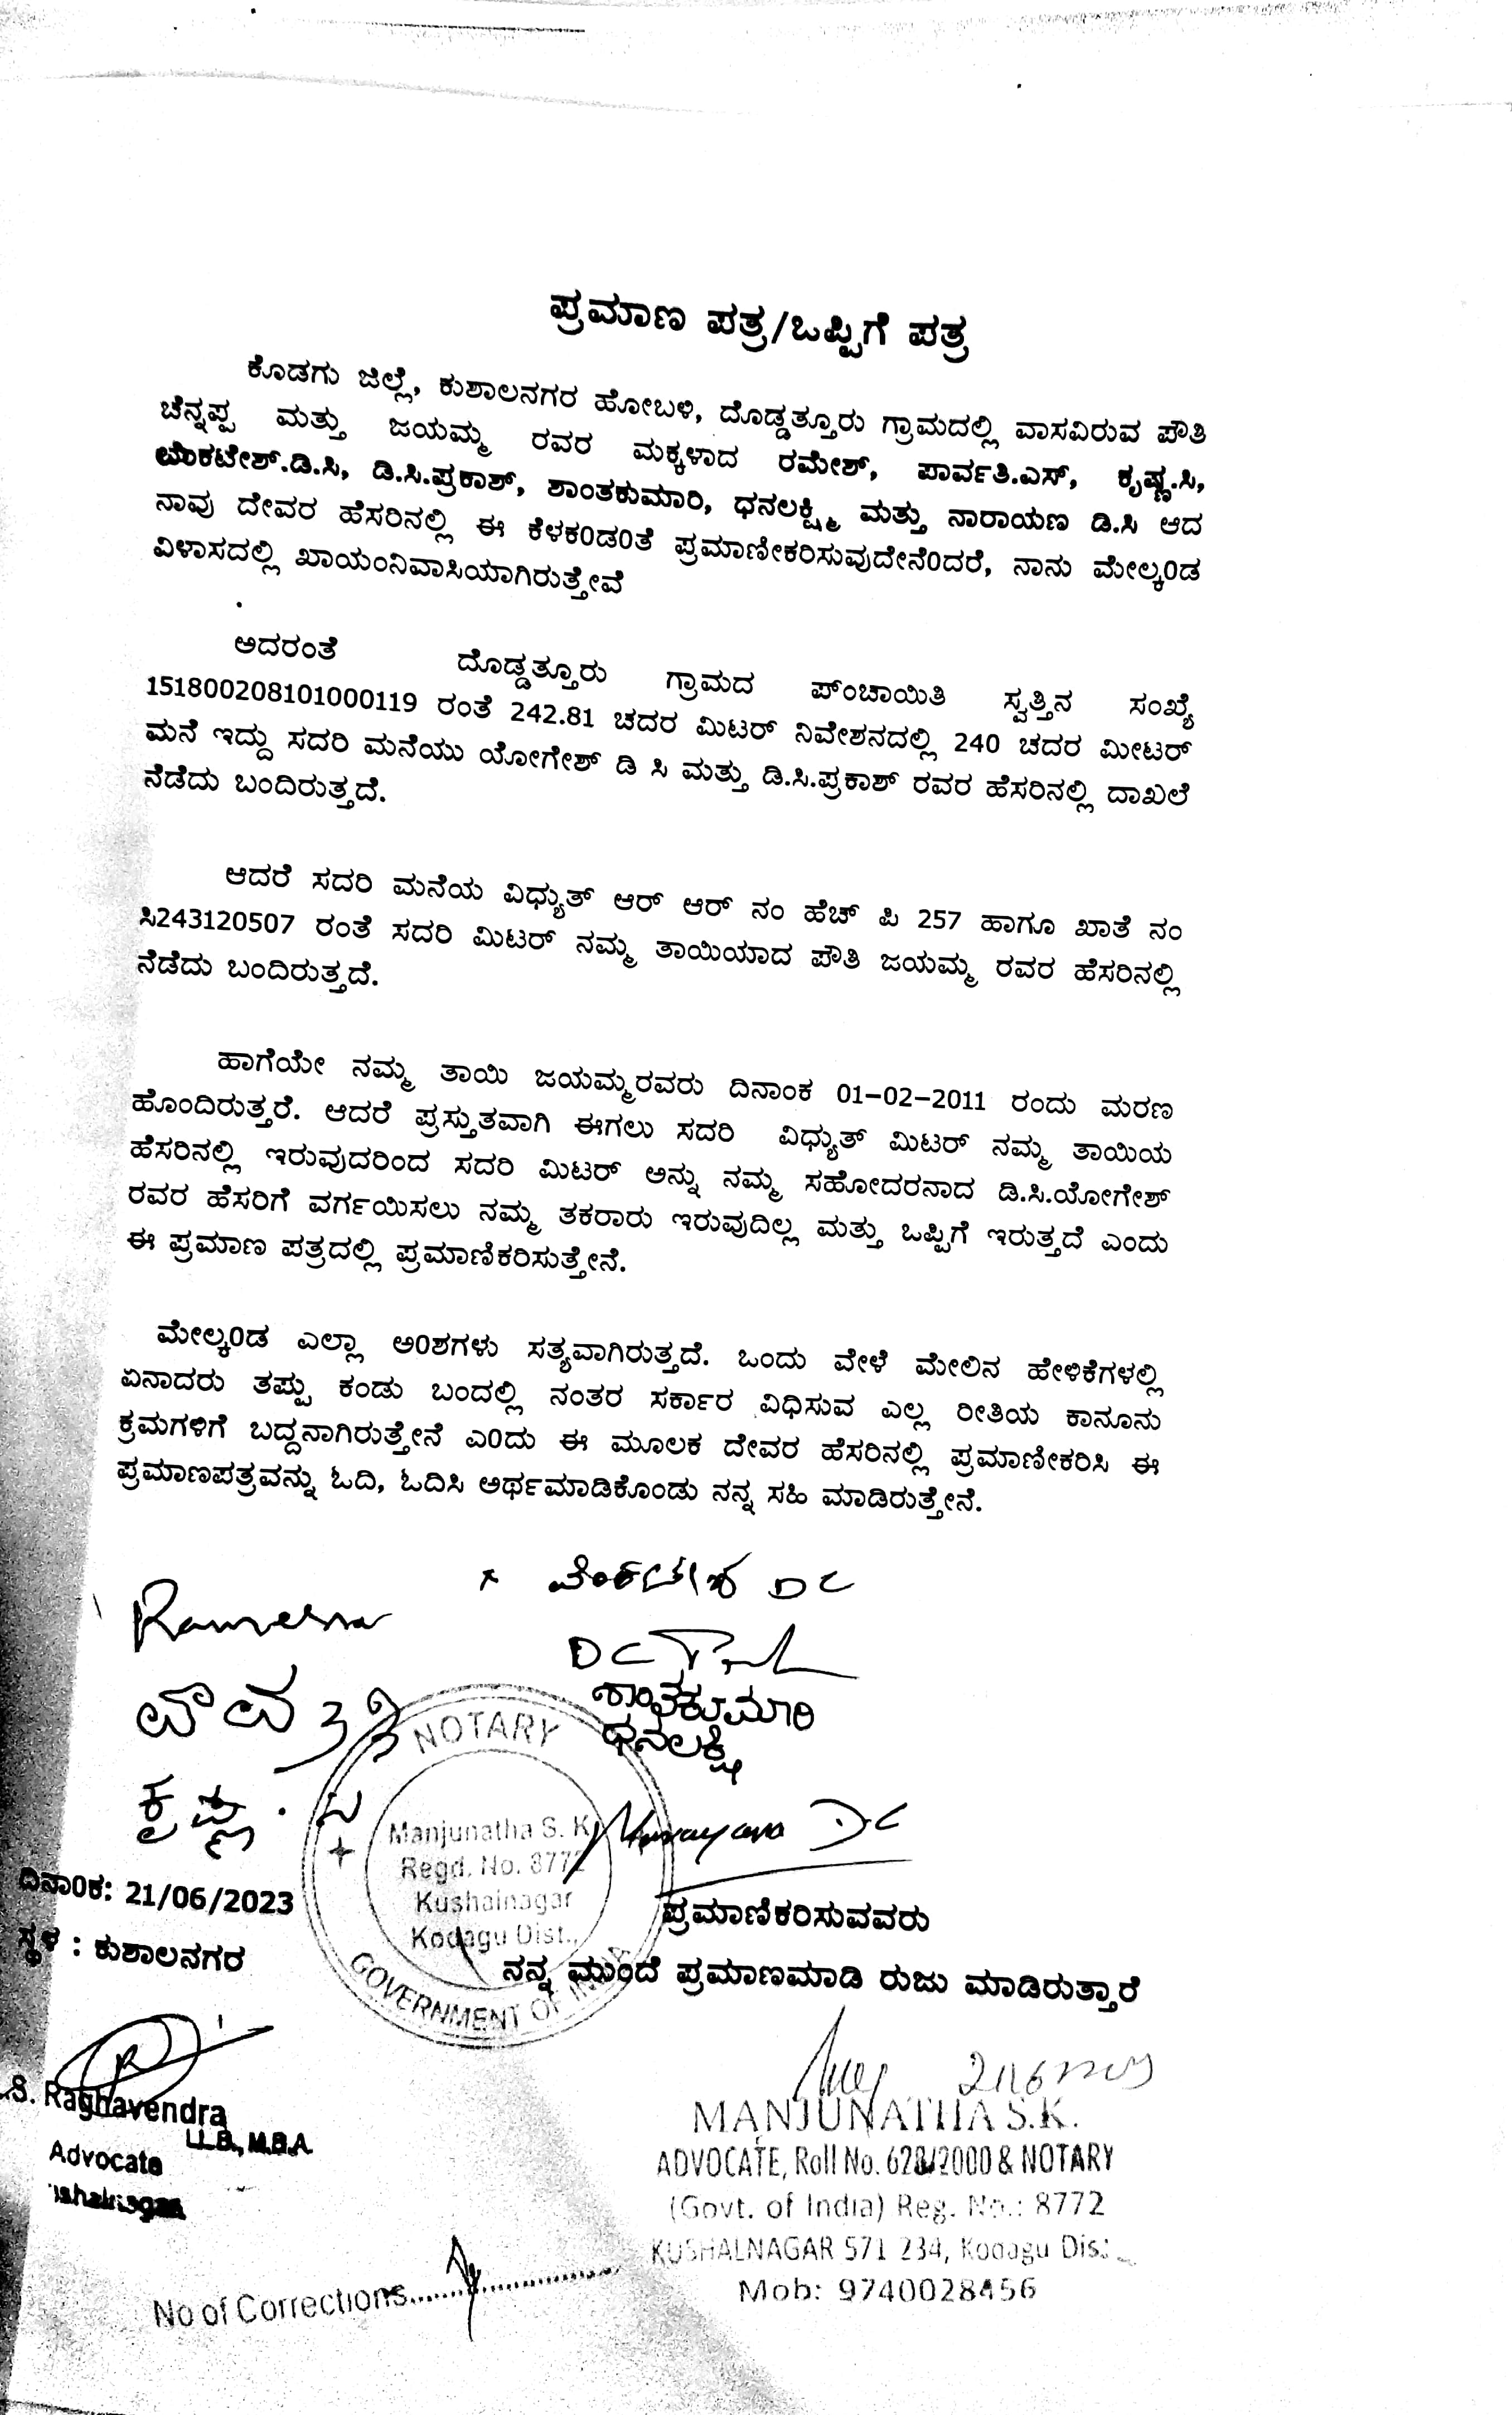 ಪ್ರಮಾಣ ಪತ್ರ/ಒಪ್ಪಿಗೆ ಪತ್ರ
ಕೊಡಗು ಜಿಲ್ಲೆ, ಕುಶಾಲನಗರ ಹೋಬಳಿ, ದೊಡ್ಡತ್ತೂರು ಗ್ರಾಮದಲ್ಲಿ ವಾಸವಿರುವ ಪೌತಿ
ಚೆನ್ನಪ್ಪ ಮತ್ತು ಜಯಮ್ಮ ರವರ ಮಕ್ಕಳಾದ ರಮೇಶ್, ಪಾರ್ವತಿ.ಎಸ್, ಕೃಷ್ಣ.ಸಿ,
ವೆಂಕಟೇಶ್.ಡಿ.ಸಿ, ಡಿ.ಸಿ.ಪ್ರಕಾಶ್, ಶಾಂತಕುಮಾರಿ, ಧನಲಕ್ಷ್ಮಿ ಮತ್ತು ನಾರಾಯಣ ಡಿ.ಸಿ ಆದ
ನಾವು ದೇವರ ಹೆಸರಿನಲ್ಲಿ ಈ ಕೆಳಕ0ಡ0ತೆ ಪ್ರಮಾಣೀಕರಿಸುವುದೇನೆ0ದರೆ, ನಾನು ಮೇಲ್ಕ0ಡ
ವಿಳಾಸದಲ್ಲಿ ಖಾಯಂನಿವಾಸಿಯಾಗಿರುತ್ತೇವೆ
.
ಅದರಂತೆ ದೊಡ್ಡತ್ತೂರು ಗ್ರಾಮದ ಪ್ಂಚಾಯಿತಿ ಸ್ವತ್ತಿನ ಸಂಖ್ಯೆ
151800208101000119 ರಂತೆ 242.81 ಚದರ ಮಿಟರ್ ನಿವೇಶನದಲ್ಲಿ 240 ಚದರ ಮೀಟರ್
ಮನೆ ಇದ್ದು ಸದರಿ ಮನೆಯು ಯೋಗೇಶ್ ಡಿ ಸಿ ಮತ್ತು ಡಿ.ಸಿ.ಪ್ರಕಾಶ್ ರವರ ಹೆಸರಿನಲ್ಲಿ ದಾಖಲೆ
ನೆಡೆದು ಬಂದಿರುತ್ತದೆ.
ಆದರೆ ಸದರಿ ಮನೆಯ ವಿಧ್ಯುತ್ ಆರ್ ಆರ್ ನಂ ಹೆಚ್ ಪಿ 257 ಹಾಗೂ ಖಾತೆ ನಂ
ಸಿ243120507 ರಂತೆ ಸದರಿ ಮಿಟರ್ ನಮ್ಮ ತಾಯಿಯಾದ ಪೌತಿ ಜಯಮ್ಮ ರವರ ಹೆಸರಿನಲ್ಲಿ
ನೆಡೆದು ಬಂದಿರುತ್ತದೆ.
ಹಾಗೆಯೇ ನಮ್ಮ ತಾಯಿ ಜಯಮ್ಮರವರು ದಿನಾಂಕ 01-02-2011 ರಂದು ಮರಣ
ಹೊಂದಿರುತ್ತರೆ. ಆದರೆ ಪ್ರಸ್ತುತವಾಗಿ ಈಗಲು ಸದರಿ ವಿಧ್ಯುತ್ ಮಿಟರ್ ನಮ್ಮ ತಾಯಿಯ
ಹೆಸರಿನಲ್ಲಿ ಇರುವುದರಿಂದ ಸದರಿ ಮಿಟರ್ ಅನ್ನು ನಮ್ಮ ಸಹೋದರನಾದ ಡಿ.ಸಿ.ಯೋಗೇಶ್
ರವರ ಹೆಸರಿಗೆ ವರ್ಗಯಿಸಲು ನಮ್ಮ ತಕರಾರು ಇರುವುದಿಲ್ಲ ಮತ್ತು ಒಪ್ಪಿಗೆ ಇರುತ್ತದೆ ಎಂದು
ಈ ಪ್ರಮಾಣ ಪತ್ರದಲ್ಲಿ ಪ್ರಮಾಣಿಕರಿಸುತ್ತೇನೆ.
ಮೇಲ್ಕ0ಡ ಎಲ್ಲಾ ಅ0ಶಗಳು ಸತ್ಯವಾಗಿರುತ್ತದೆ. ಒಂದು ವೇಳೆ ಮೇಲಿನ ಹೇಳಿಕೆಗಳಲ್ಲಿ
ಏನಾದರು ತಪ್ಪು ಕಂಡು ಬಂದಲ್ಲಿ ನಂತರ ಸರ್ಕಾರ ವಿಧಿಸುವ ಎಲ್ಲ ರೀತಿಯ ಕಾನೂನು
ಕ್ರಮಗಳಿಗೆ ಬದ್ದನಾಗಿರುತ್ತೇನೆ ಎ0ದು ಈ ಮೂಲಕ ದೇವರ ಹೆಸರಿನಲ್ಲಿ ಪ್ರಮಾಣೀಕರಿಸಿ ಈ
ಪ್ರಮಾಣಪತ್ರವನ್ನು ಓದಿ, ಓದಿಸಿ ಅರ್ಥಮಾಡಿಕೊಂಡು ನನ್ನ ಸಹಿ ಮಾಡಿರುತ್ತೇನೆ.
x ವೆಂಕಟೇಶ DC
Ramesha
DC
ಶಾಂತಕುಮಾರಿ
ಧನಲಕ್ಷ್ಮಿ
ಕೃಷ್ಣ . ಸಿ
Narayana DC
NOTARY
Manjunatha S. K.
Regd. No. 8772
Kushalnagar
Kodagu Dist.,
GOVERNMENT OF INDIA
ದಿನಾ0ಕ: 21/06/2023
ಪ್ರಮಾಣಿಕರಿಸುವವರು
ಸ್ಥಳ : ಕುಶಾಲನಗರ
ನನ್ನ ಮುಂದೆ ಪ್ರಮಾಣಮಾಡಿ ರುಜು ಮಾಡಿರುತ್ತಾರೆ
.S. Raghavendra
LL.B., M.B.A.
Advocate
MANJUNATHA S.K.
ADVOCATE, Roll No. 628/2000 & NOTARY
(Govt. of India) Reg. No.: 8772
KUSHALNAGAR 571 234, Kodagu Dist
Mob: 9740028456
No of Corrections..........